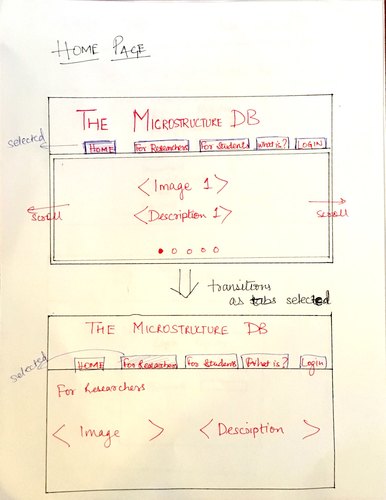 HOME PAGE
THE MICROSTRUCTURE DB
selected
HOME For Researchers For Students What is? LOGIN
<Image 1>
<Description 1>
Scroll Scroll
transitions
as tabs selected
THE MICROSTRUCTURE DB
selected
HOME For Researchers For Students What is? Login
For Researchers
< Image > < Description >